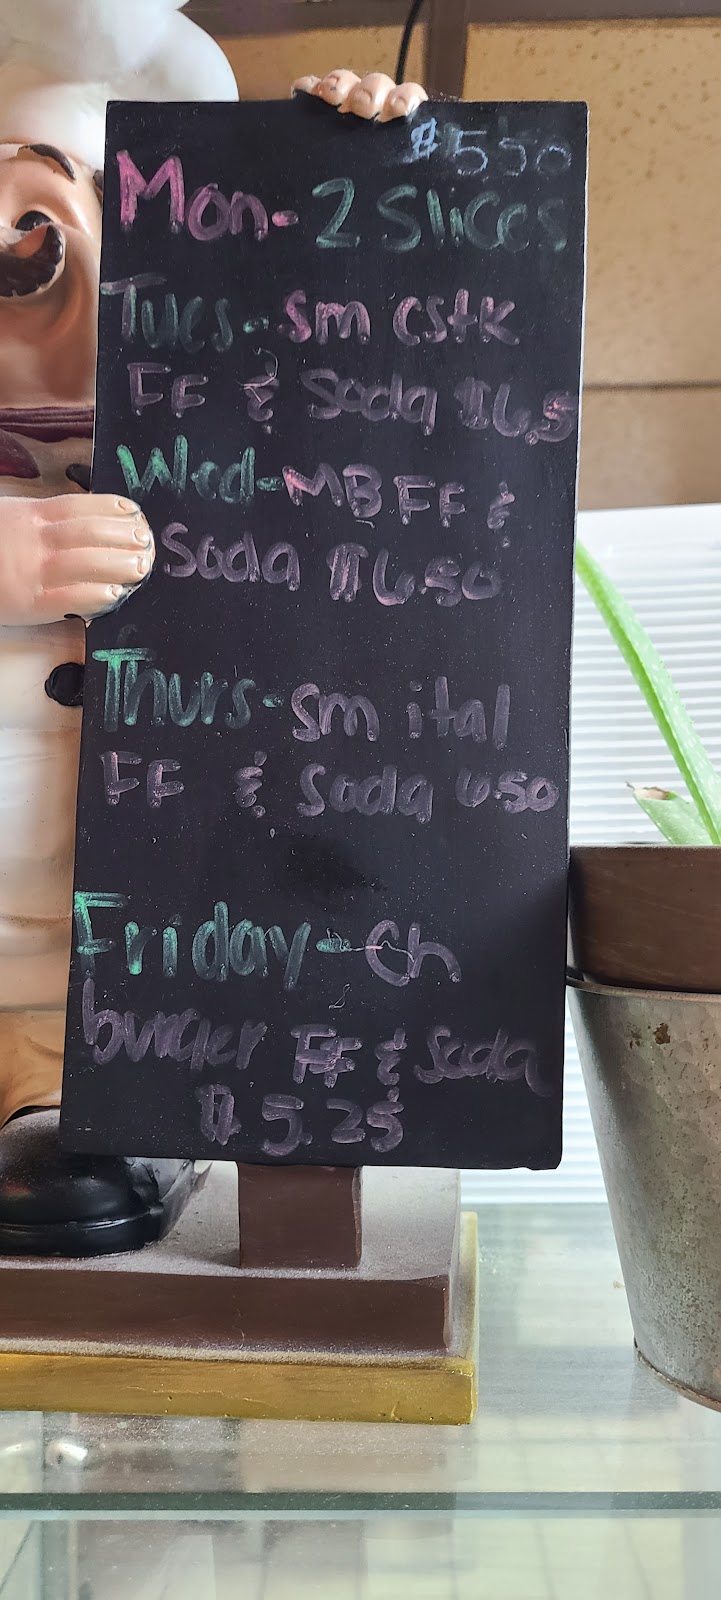 $550
Mon- 2 Slices
Tues- Sm CStK
FF & Soda $6.5
Wed- MB FF &
Soda $6.50
Thurs- Sm ital
FF & Soda 6.50
Friday- Ch
burger FF & Soda
$5.25